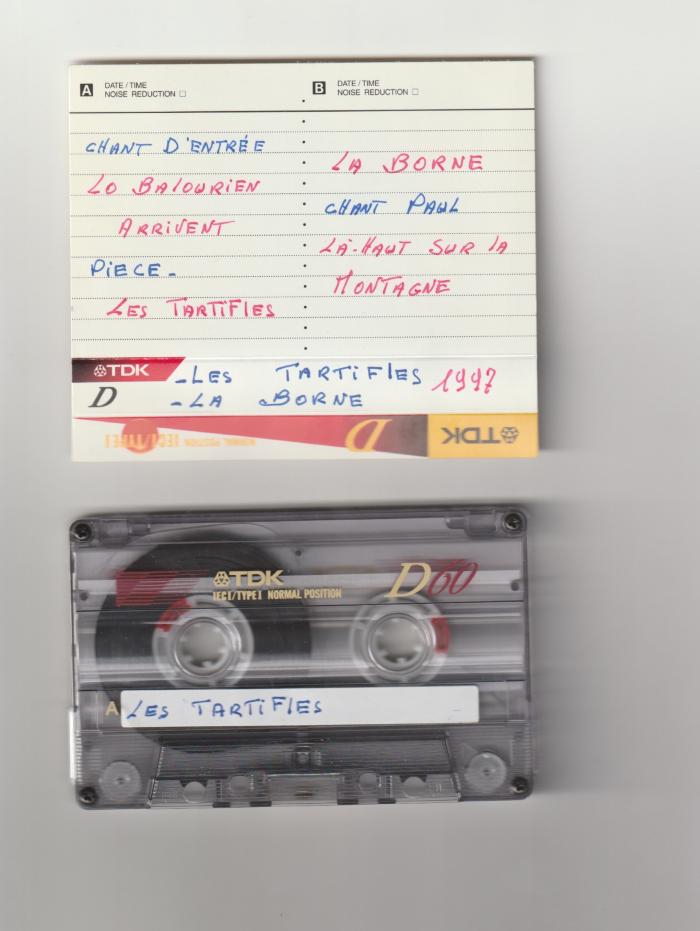 A DATE / TIME
NOISE REDUCTION
B DATE / TIME
NOISE REDUCTION
CHANT D'ENTRÉE
LO BALOURIEN
ARRIVENT
PIECE -
LES TARTIFLES
LA BORNE
CHANT PAUL
LÀ-HAUT SUR LA
MONTAGNE
TDK
D
- LES TARTIFLES 1997
- LA BORNE
TDK
D
NORMAL POSITION IECI/TYPEI
TDK
D60
IECI/TYPEI NORMAL POSITION
A LES TARTIFLES